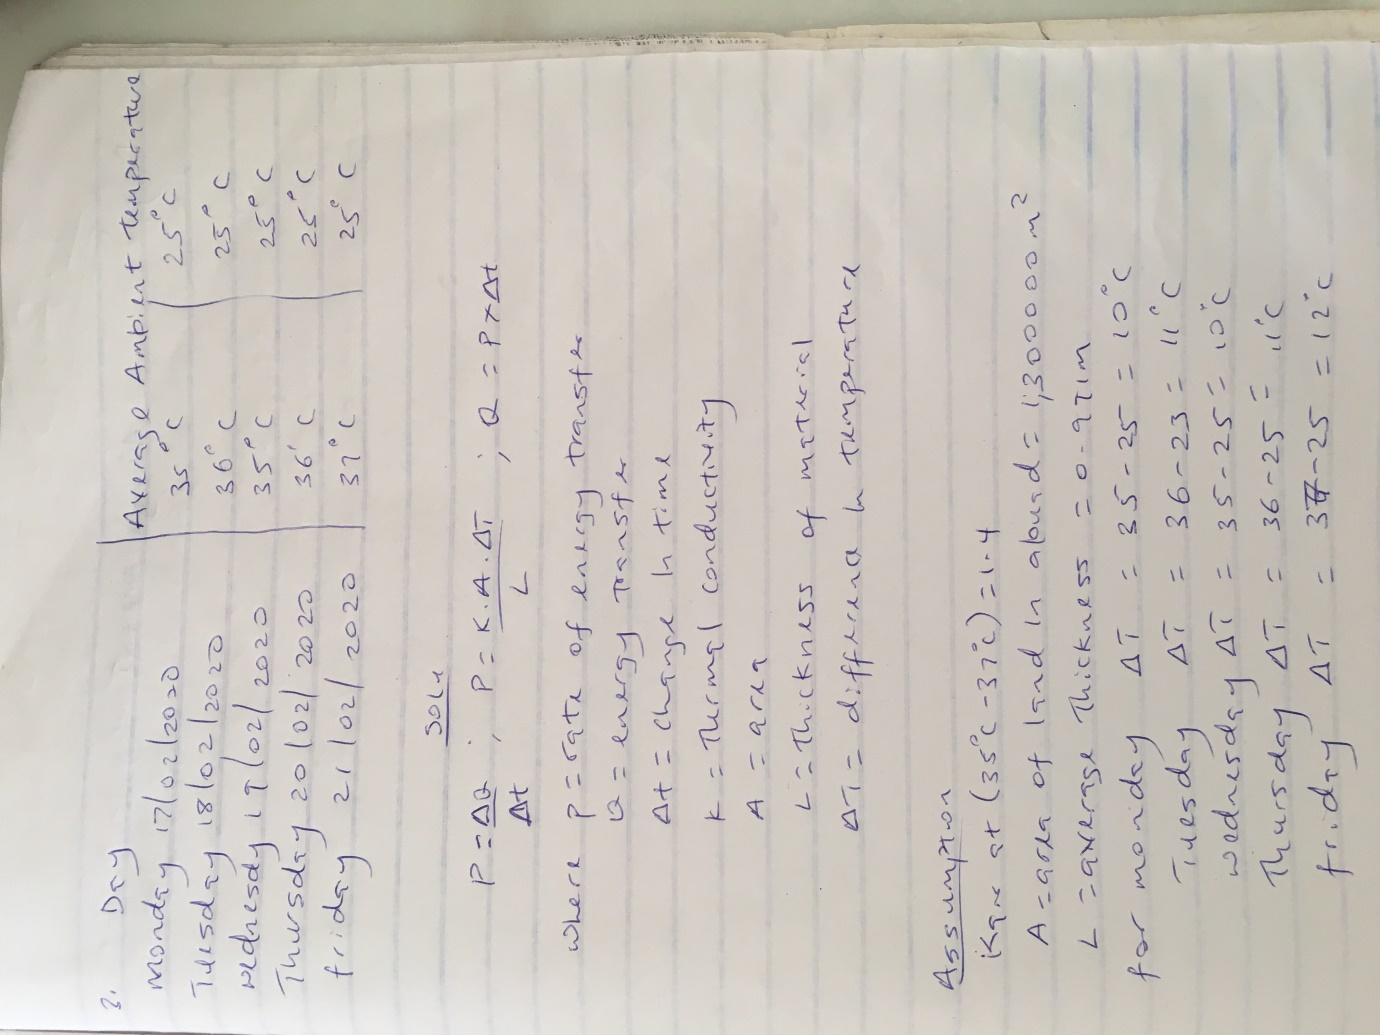 3. Day | Average Ambient temperature
Monday 17/02/2020 | 35°C | 25°C
Tuesday 18/02/2020 | 36°C | 25°C
wednesdy 19/02/2020 | 35°C | 25°C
Thursday 20/02/2020 | 36°C | 25°C
friday 21/02/2020 | 37°C | 25°C
Soln
P = ΔQ/Δt ; P = K.A.ΔT/L ; Q = P×Δt
where P = rate of energy transfer
Q = energy transfer
Δt = change in time
K = Thermal conductivity
A = area
L = Thickness of material
ΔT = difference in temperature
Assumption
at (35°C - 37°C) = 1.4
A = area of land in abuad = 1,300000m²
L = average Thickness = 0.971m
for monday ΔT = 35-25 = 10°C
Tuesday ΔT = 36-23 = 11°C
wednesday ΔT = 35-25 = 10°C
Thursday ΔT = 36-25 = 11°C
friday ΔT = 37-25 = 12°C